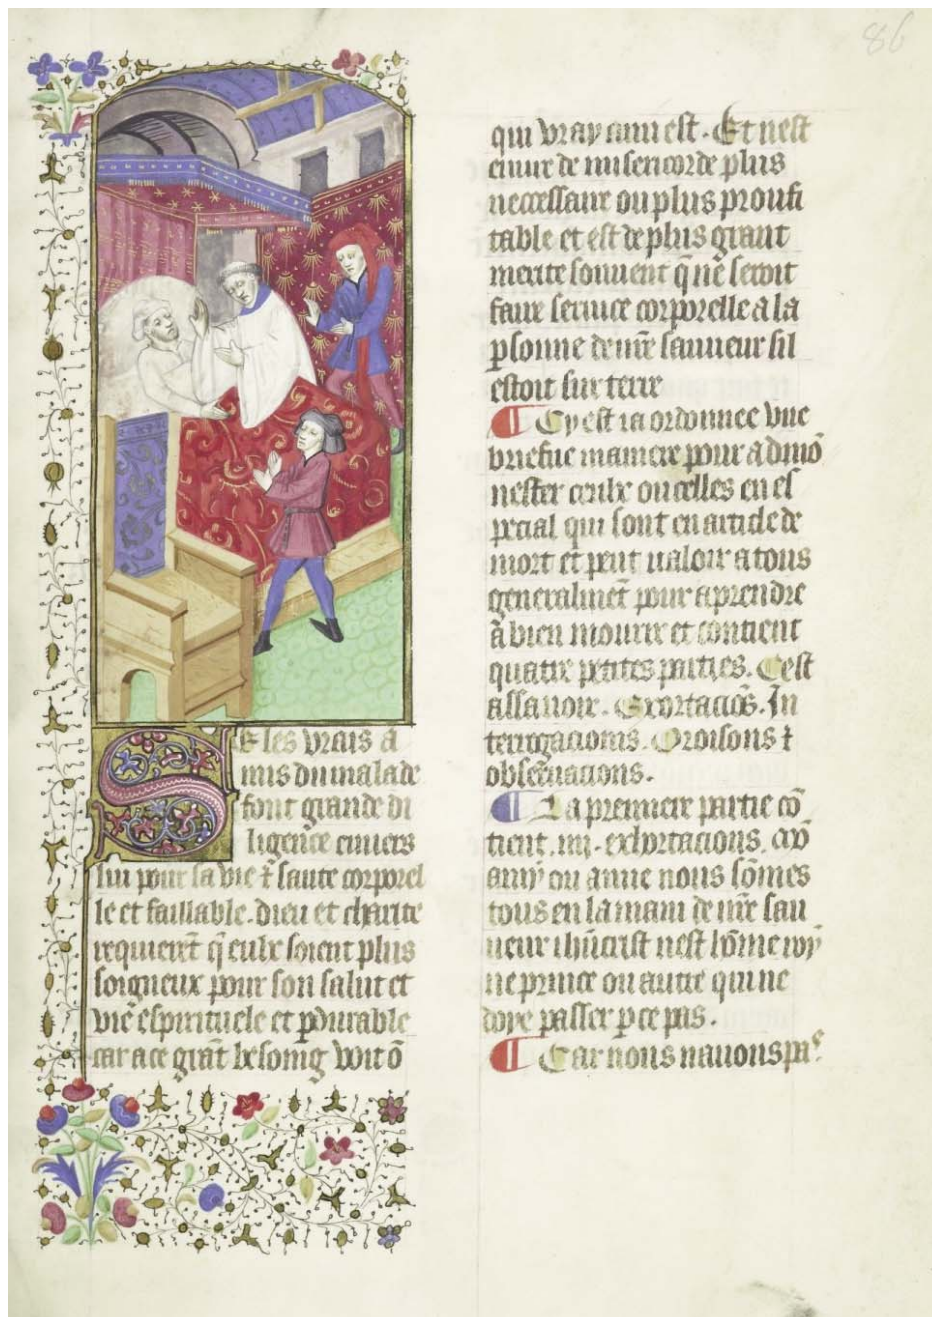 86
Se les vrais a
mis du malade
font grande di
ligence enuers
lui pour sa vie ⁊ sante corporel
le et faillable. dieu et charite
requierēt q̄ eulx soient plus
soigneux pour son salut et
vie espirituele et p̄durable
car a ce grāt besoing voit ō
qui vray amy est. Et nest
euure de misericorde plus
necessaire ou plus proufi
table et est de plus grant
merite souuent q̄ ne seroit
faire seruice corporelle a la
p̄sonne de nr̄e sauueur sil
estoit sur terre
¶ Cy est ia ordonnee vne
briefue maniere pour admō
nester ceulx ou celles en es
pecial qui sont en article de
mort et peut ualoir a tous
generalmēt pour aprendre
a bien mourir et contient
quatre petites parties. Cest
assauoir. Exortaciōs. In
terrogacions. Oroisons ⁊
obseruacions.
¶ La premiere partie cō
tient .iiij. exhortacions.
amy ou amie nous sōmes
tous en la main de nr̄e sau
ueur ih̄ucrist nest hōme roy
ne prince ou autre qui ne
doye passer p̄ ce pas.
¶ Car nous nauons pas